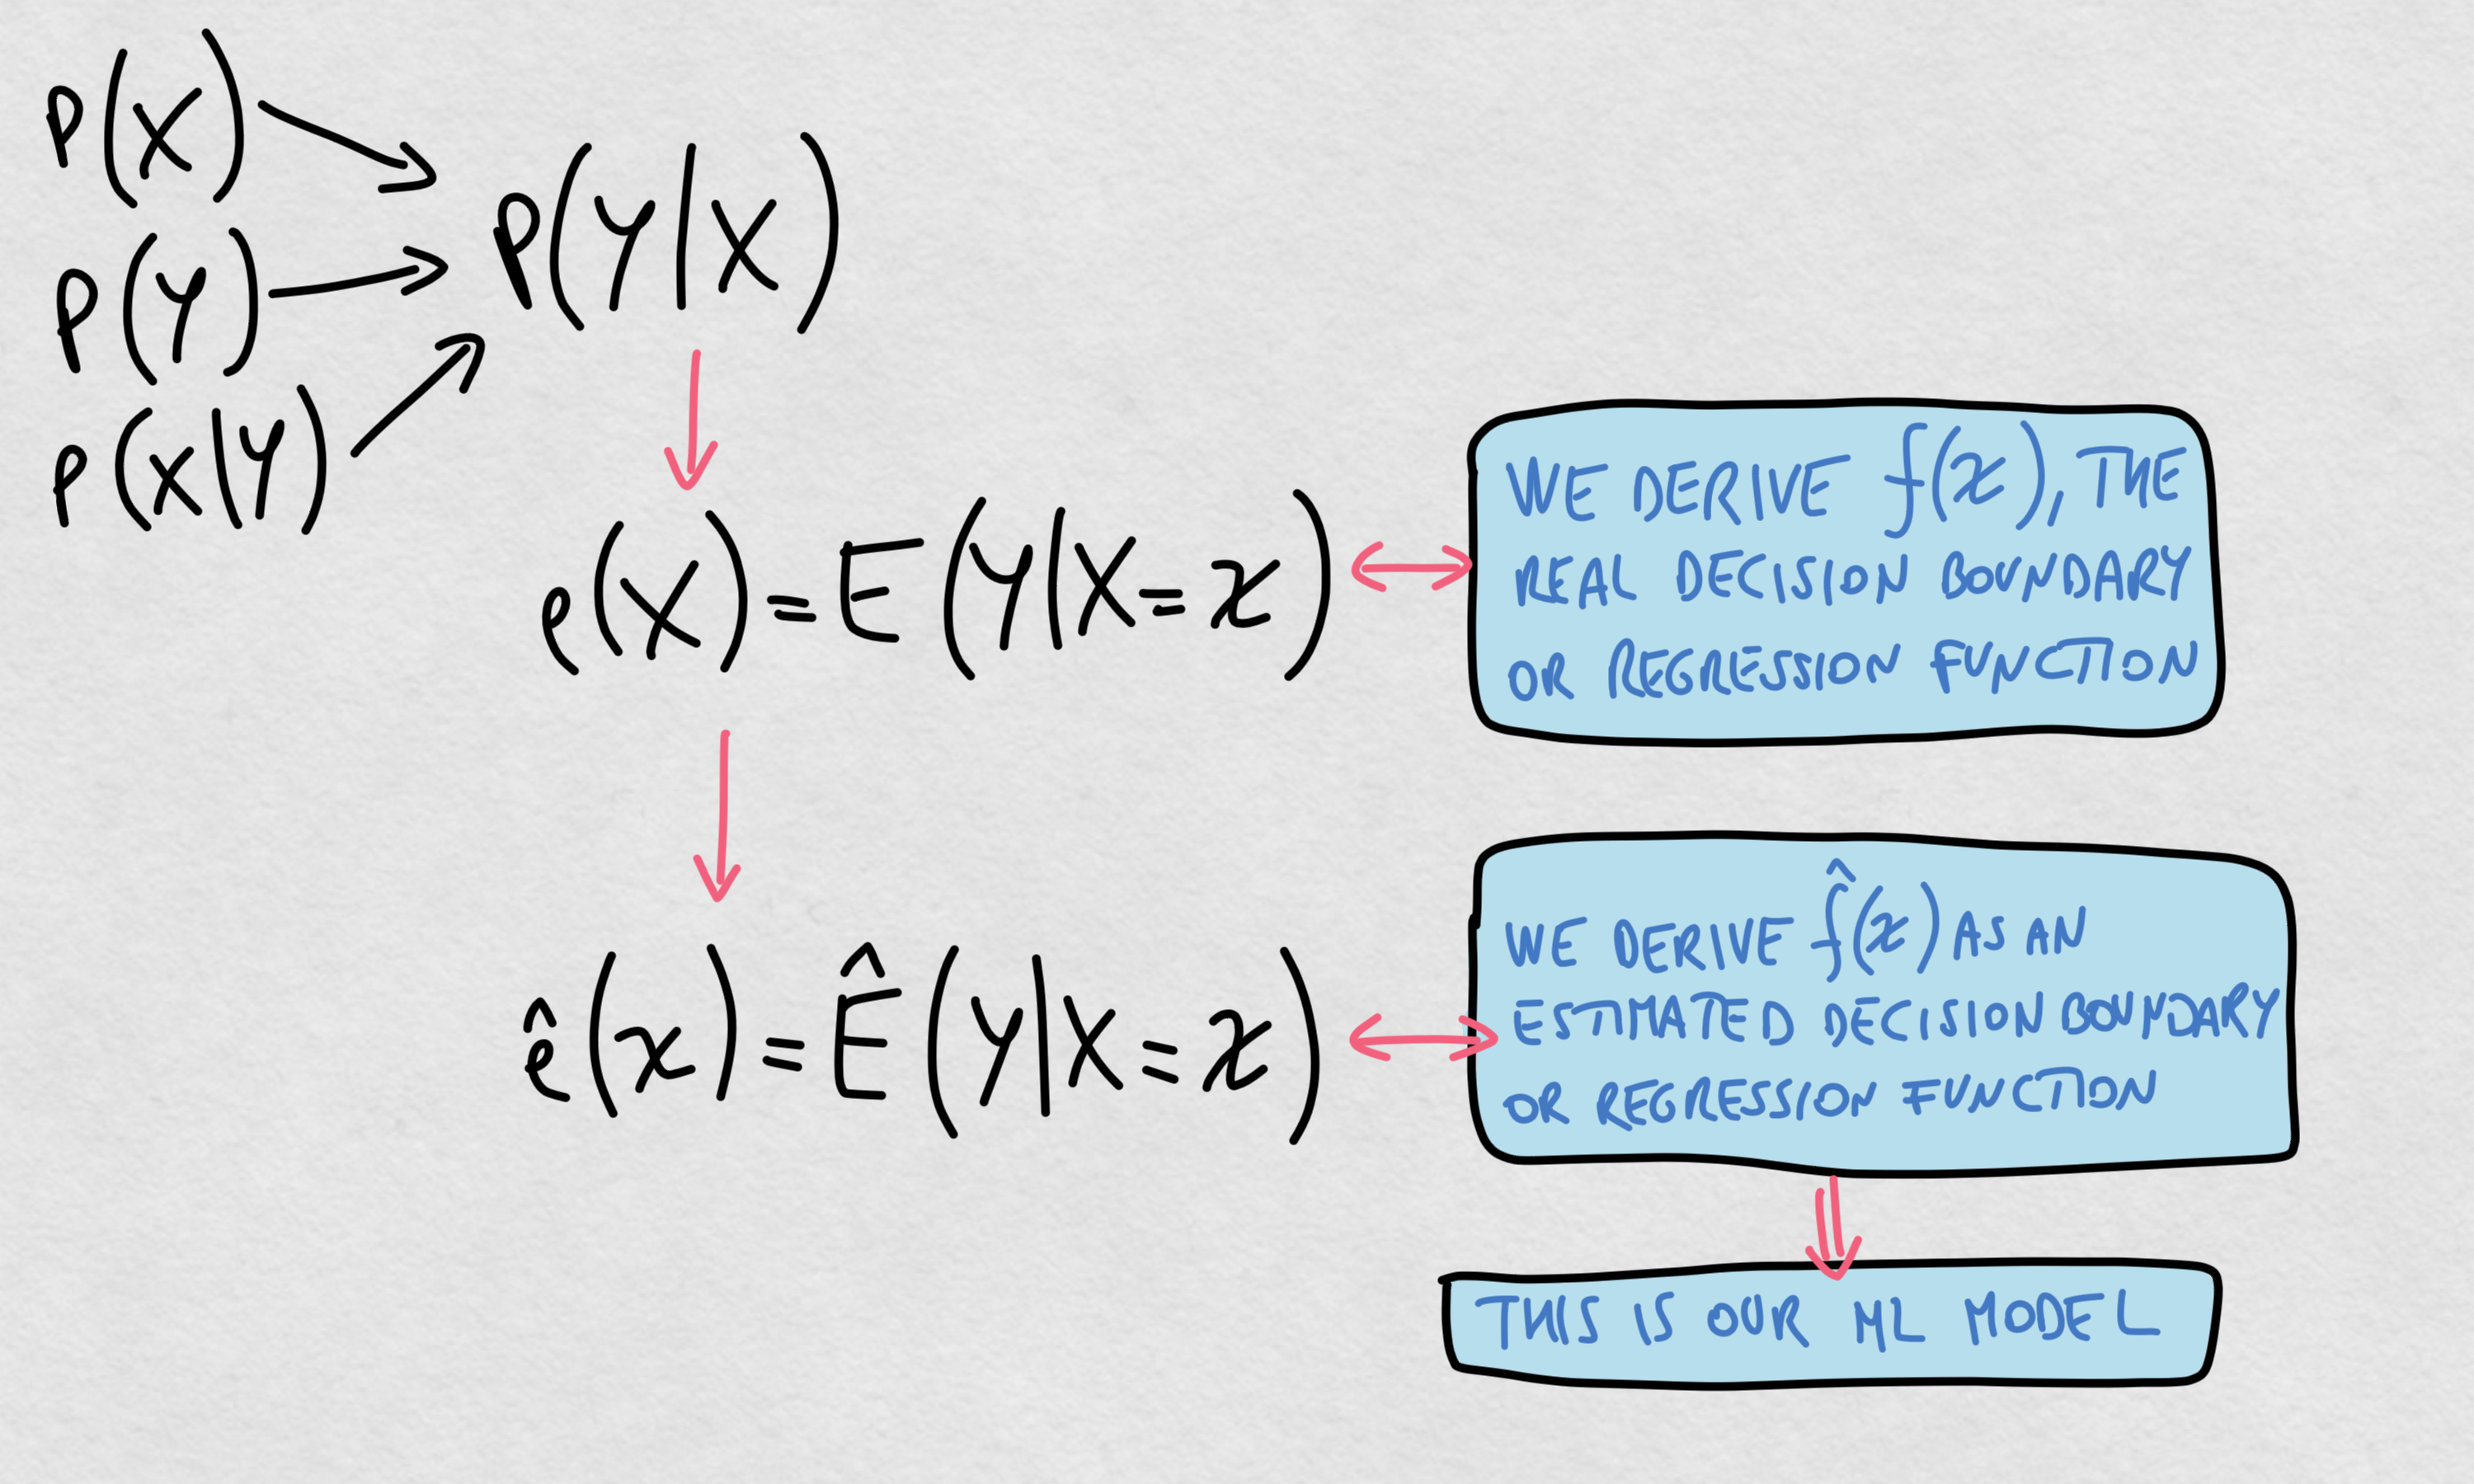 P(X)
P(Y)
P(X|Y)
P(Y|X)
e(X)=E(Y|X=x)
WE DERIVE f(x), THE
REAL DECISION BOUNDARY
OR REGRESSION FUNCTION
ê(x)=Ê(Y|X=x)
WE DERIVE f̂(x) AS AN
ESTIMATED DECISION BOUNDARY
OR REGRESSION FUNCTION
THIS IS OUR ML MODEL